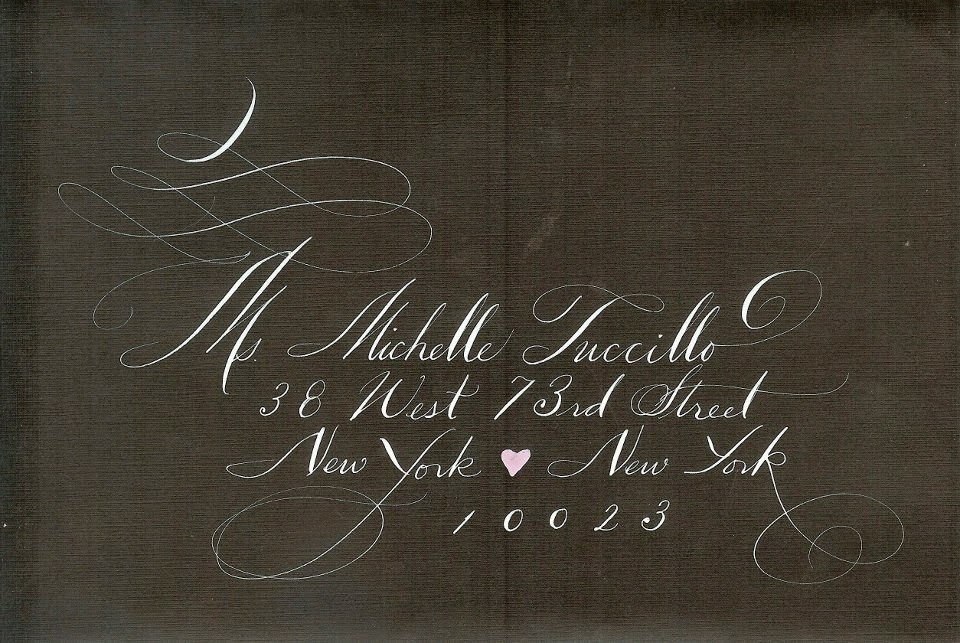 Ms. Michelle Tuccillo
38 West 73rd Street
New York ♥ New York
10023